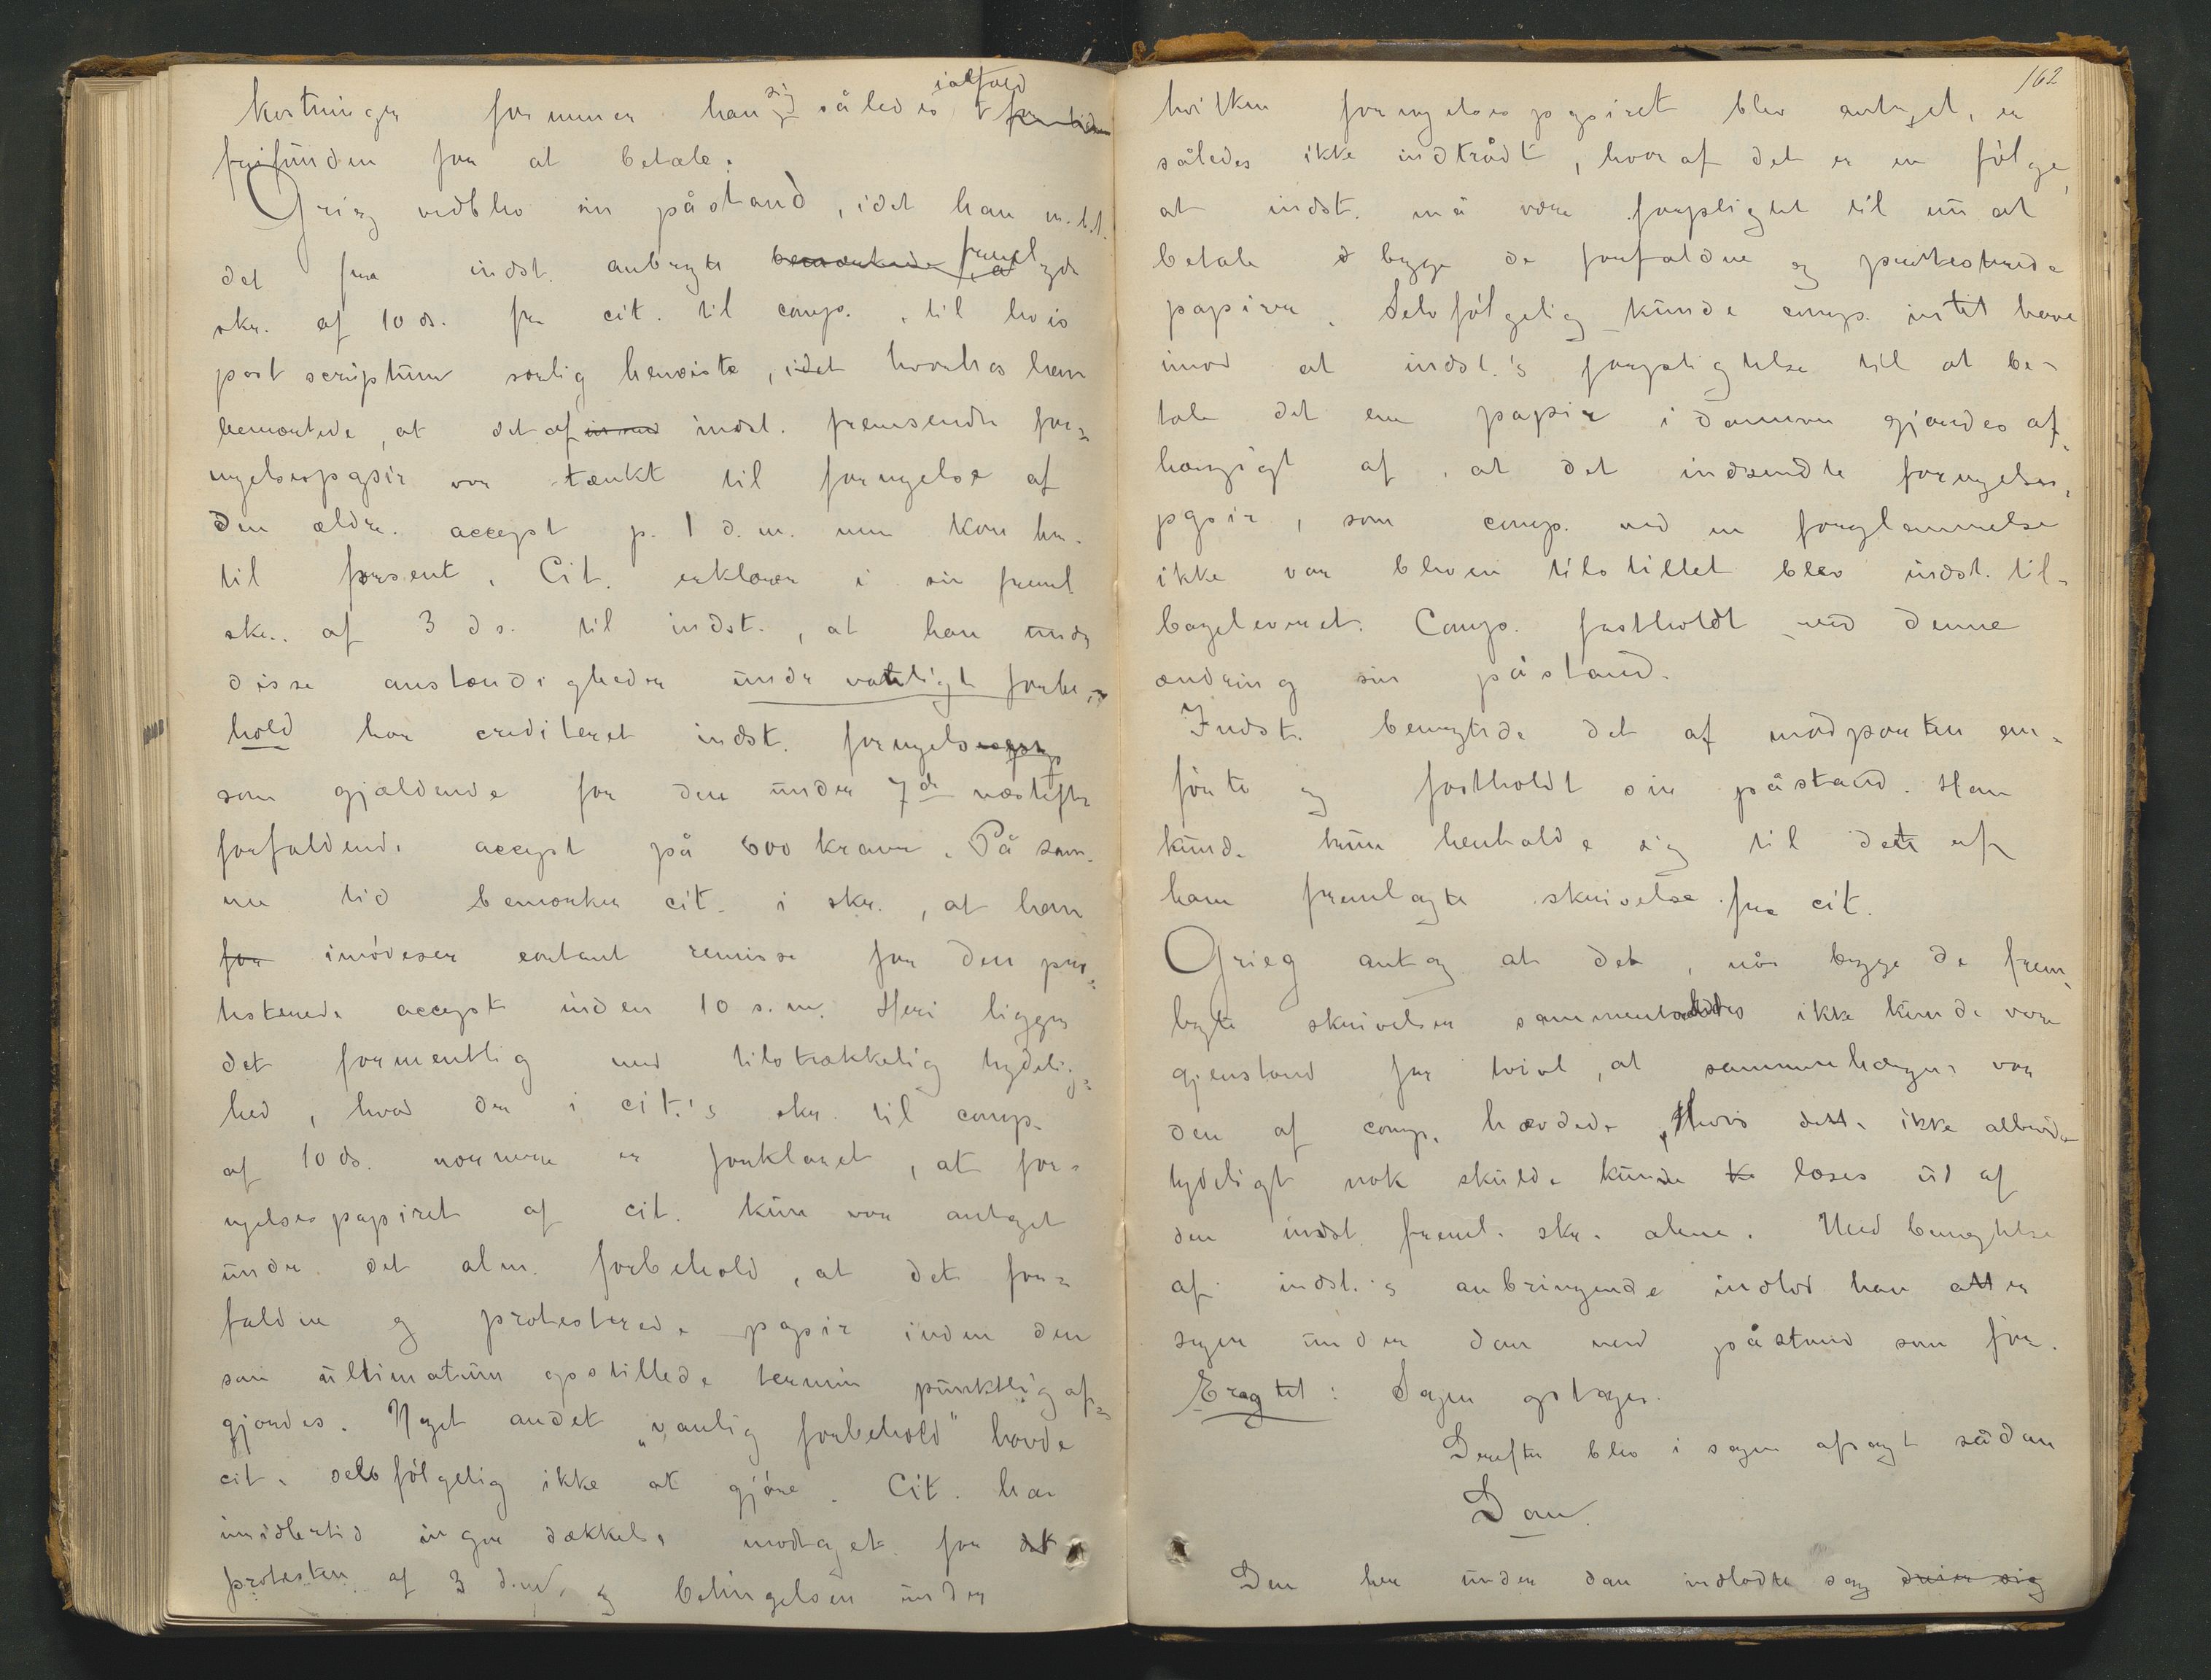 kortninger formener han sig således ialfald
frifunden for at betale.
Grieg vedblev sin påstand, idet han m.h.t.
det fra indst. anbragte bemærkede freml.
skr. af 10 ds. fra cit. til comp., til hvis
post scriptum særlig henviste, idet hvorhos han
bemærkede, at det af indst. fremsendte for-
nyelsespapir var tænkt til fornyelse af
den ældre accept p. 1 d.m. men kom for
til præsent. Cit. erklærer i sin freml
skr. af 3 ds. til indst., at han under
disse omstændigheder under vanligt forbe-
hold har crediteret indst. fornyels
som gjældende for den under 7de næstefter
forfaldende accept på 600 kroner. På sam-
me tid bemærker cit. i skr., at han
for imødeser contant remisse for den pro-
testerede accept inden 10 s.m. Heri ligger
det formentlig med tilstrækkelig tydelig-
hed, hvad der i cit.'s skr. til comp.
af 10 ds. nærmere er forklaret, at for-
nyelsespapiret af cit. kun var antaget
under det alm. forbehold, at det for-
faldne og protesterede papir inden den
som ultimatum opstillede termin punktlig af-
gjordes. Noget andet "vanlig forbehold" havde
cit. selvfølgelig ikke at gjøre. Cit. har
imidlertid ingen dækkelse modtaget for det
protesten af 3 d.m. og betingelsen under
162
hvilken fornyelsespapiret blev antaget, er
således ikke indtrådt, hvoraf det er en følge,
at indst. må være forpligtet til nu at
betale begge de forfaldne og protesterede
papirer. Selvfølgelig kunde comp. intet have
imod at indst.'s forpligtelse til at be-
tale det ene papir i dommen gjordes af-
hængigt af, at det indsendte fornyelses-
papir, som comp. ved en forglemmelse
ikke var bleven tilstillet blev indst. til-
bageleveret. Comp. fastholdt med denne
ændring sin påstand.
Indst. benegtede det af modparten an-
førte og fastholdt sin påstand. Han
kunde kun henholde sig til det af
ham fremlagte skrivelse fra cit.
Grieg antog at det, når begge de frem-
lagte skrivelser sammenholdtes ikke kunde være
gjenstand for tvivl, at sammenhængen var
den af comp. hævdede, Hvis dette ikke allerede
tydeligt nok skulde kunde læses ud af
den indst. freml. skr. alene. Med benegtelse
af indst.'s anbringende indlod han atter
sagen under dom med påstand som før.
Eragtet: Sagen optages.
Derefter blev i sagen afsagt sådan
Dom.
Den her under dom indladte sag dreier sig